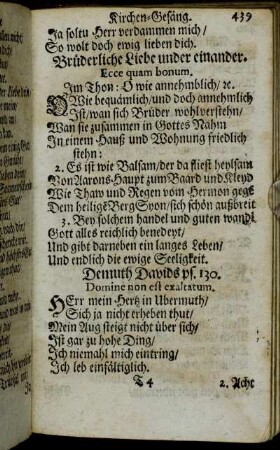 Kirchen-Gesäng. 439
Ja soltu Herr verdammen mich/
So wolt doch ewig lieben dich.
Brüderliche Liebe under einander.
Ecce quam bonum.
Im Thon: O wie annehmblich/ ꝛc.
O Wie bequämlich/und doch annehmlich
Ist/wan sich Brüder wohl verstehn/
Wan sie zusammen in Gottes Nahm
In einem Hauß und Wohnung friedlich
stehn:
2. Es ist wie Balsam/der da fliest heylsam
Von Aarons-Haupt zum Baard und Kleyd
Wie Thaw und Regen vom Hermon gegẽ
Dem heiligẽ Berg Syon/sich schön außbreit
3. Bey solchem handel und guten wandl
Gott alles reichlich benedeyt/
Und gibt darneben ein langes Leben/
Und endlich die ewige Seeligkeit.
Demuth Davids ps. 130.
Domine non est exaltatum.
HErr mein Hertz in Ubermuth/
Sich ja nicht erheben thut/
Mein Aug steigt nicht über sich/
Ist gar zu hohe Ding/
Ich niemahl mich eintring/
Ich leb einfältiglich.
T 4 2. Acht